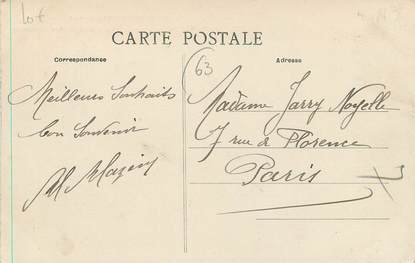 Lot
CARTE POSTALE
Correspondance
Adresse
63
Meilleurs Souhaits
bon Souvenir
Madame Jarry Noyelle
7 rue de Florence
Paris